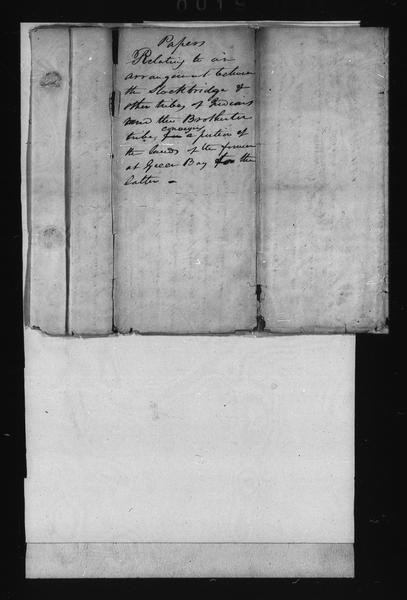 Papers
Relating to an
arrangement between
the Stockbridge &
other tribes of Indians
and the Brotherton
tribe, conveying a portion of
the lands of the former
at Green Bay to the
latter -